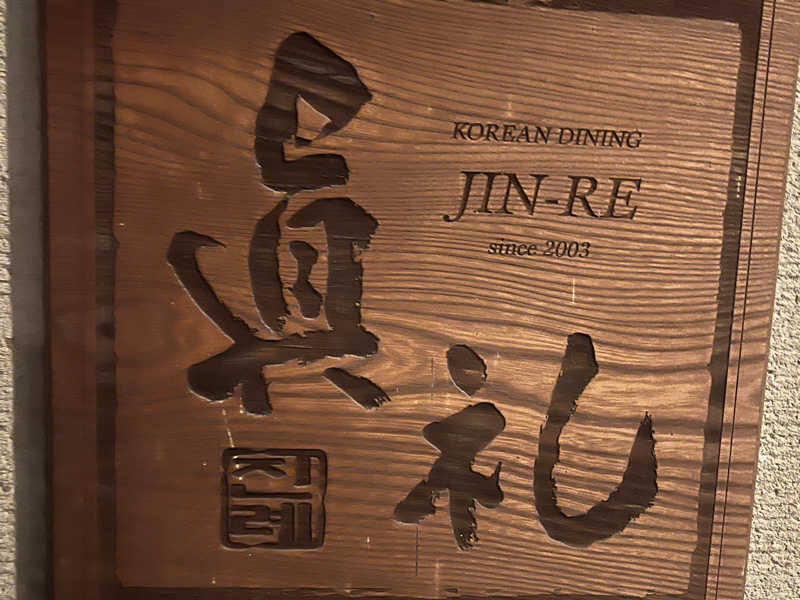 眞礼
KOREAN DINING
JIN-RE
since 2003
진레